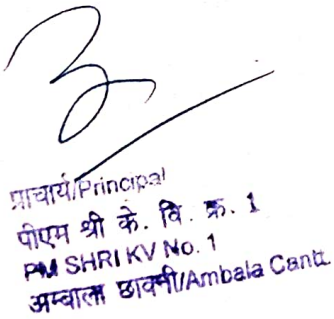 प्राचार्य/Principal
पीएम श्री के. वि. क्र. 1
PM SHRI KV No. 1
अम्बाला छावनी/Ambala Cantt.